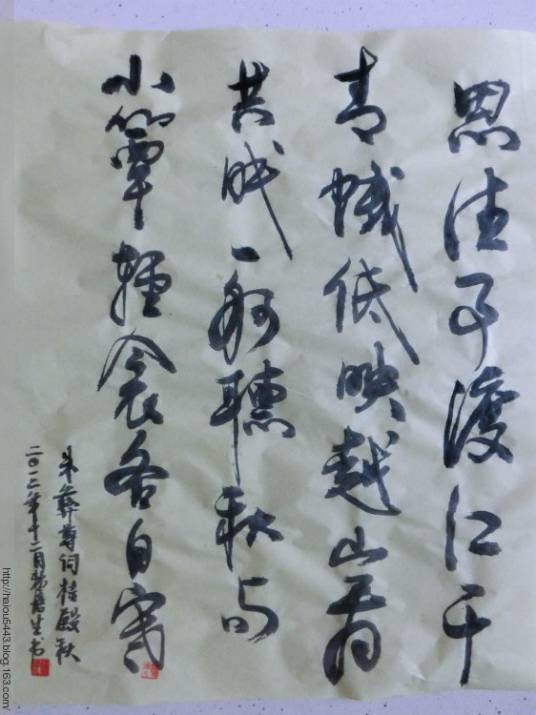 思往事渡江干
青蛾低映越山看
共眠一舸聽秋雨
小簟輕衾各自寒
朱彝尊词桂殿秋
二〇一二年十二月生书
http://haiou5443.blog.163.com/